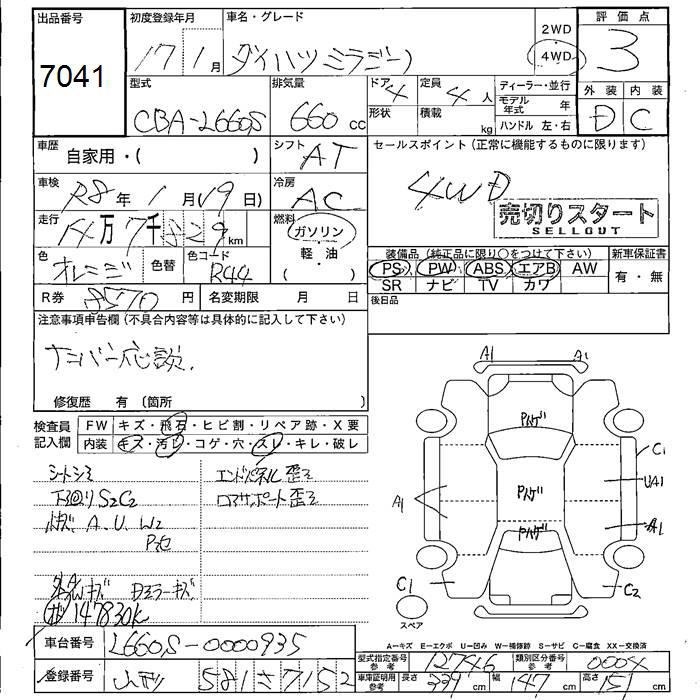 出品番号
7041
初度登録年月
17 1月
車名・グレード
ダイハツ ミラジーノ
2WD
4WD
評価点
3
外装 内装
D C
型式
CBA-L660S
排気量
660 cc
ドア
4
形状
定員
4人
積載
kg
ディーラー・並行
モデル年式 年
ハンドル 左・右
車歴
自家用・( )
シフト
AT
セールスポイント(正常に機能するものに限ります)
4WD
売切りスタート
SELLOUT
車検
R8年 1月19日)
冷房
AC
走行
14万7千829km
燃料
ガソリン
・
軽・油
( )
色
オレンジ
色替
色コード
R44
装備品(純正品に限り○をつけて下さい)
PS PW ABS エアB AW
SR ナビ TV カワ
新車保証書
有・無
R券
8570円
名変期限 月 日
後日品
注意事項申告欄(不具合内容等は具体的に記入して下さい)
ナンバー応談.
修復歴 有(箇所 )
検査員記入欄
FW キズ・飛石・ヒビ割・リペア跡・X要
内装 キズ・汚レ・コゲ・穴・スレ・キレ・破レ
シートシミ
エンドパネル歪ミ
下回りS2C2
コアサポート歪ミ
A.U.W2
Dミラーキズ
147830K
A1 A1
Pハゲ
C1
UA1
Pハゲ
A1
A1
Pハゲ
C1
C2
スペア
A—キズ E—エクボ U—凹み W—補修跡 S—サビ C—腐食 XX—交換済
車台番号
L660S-0000935
型式指定番号参考
12746
類別区分番号参考
0004
登録番号
581 さ 7152
車庫証明用参考
長さ 339cm
幅 147cm
高さ 151cm